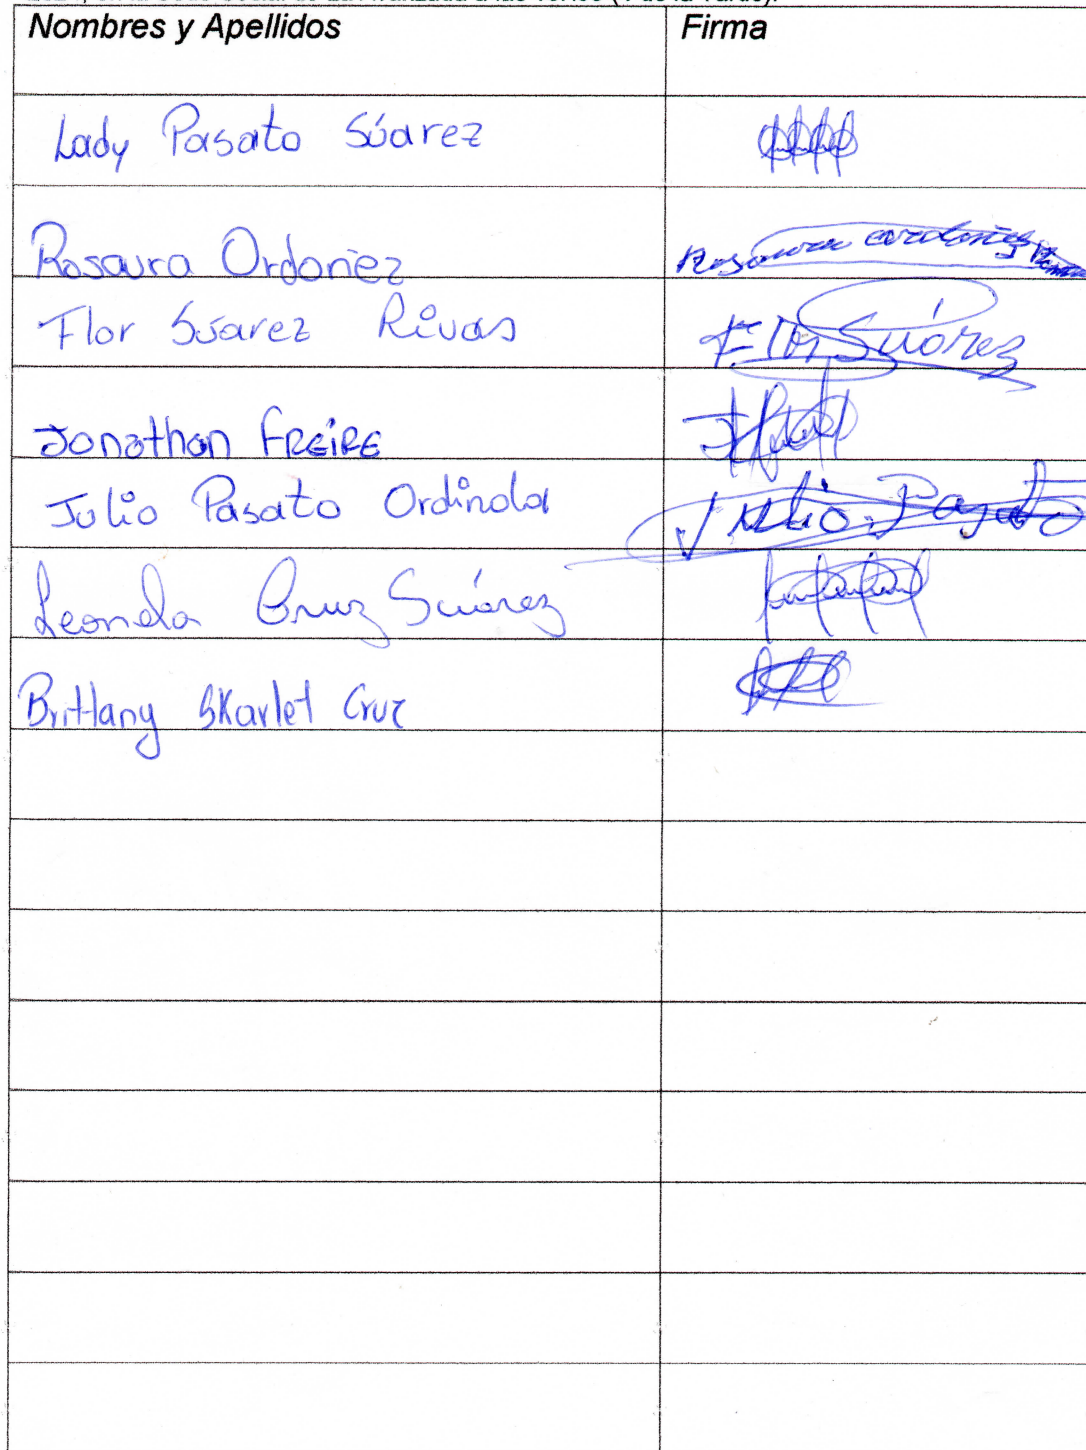 Nombres y Apellidos Firma
Lady Pasato Súarez
Rosaura Ordoñez Rosaura
Flor Súarez Rivas Flor Suárez
Jonathan FREIRE
Julio Pasato Ordinola Julio Pasato
Leonela Cruz Suárez
Brittany Skarlet Cruz